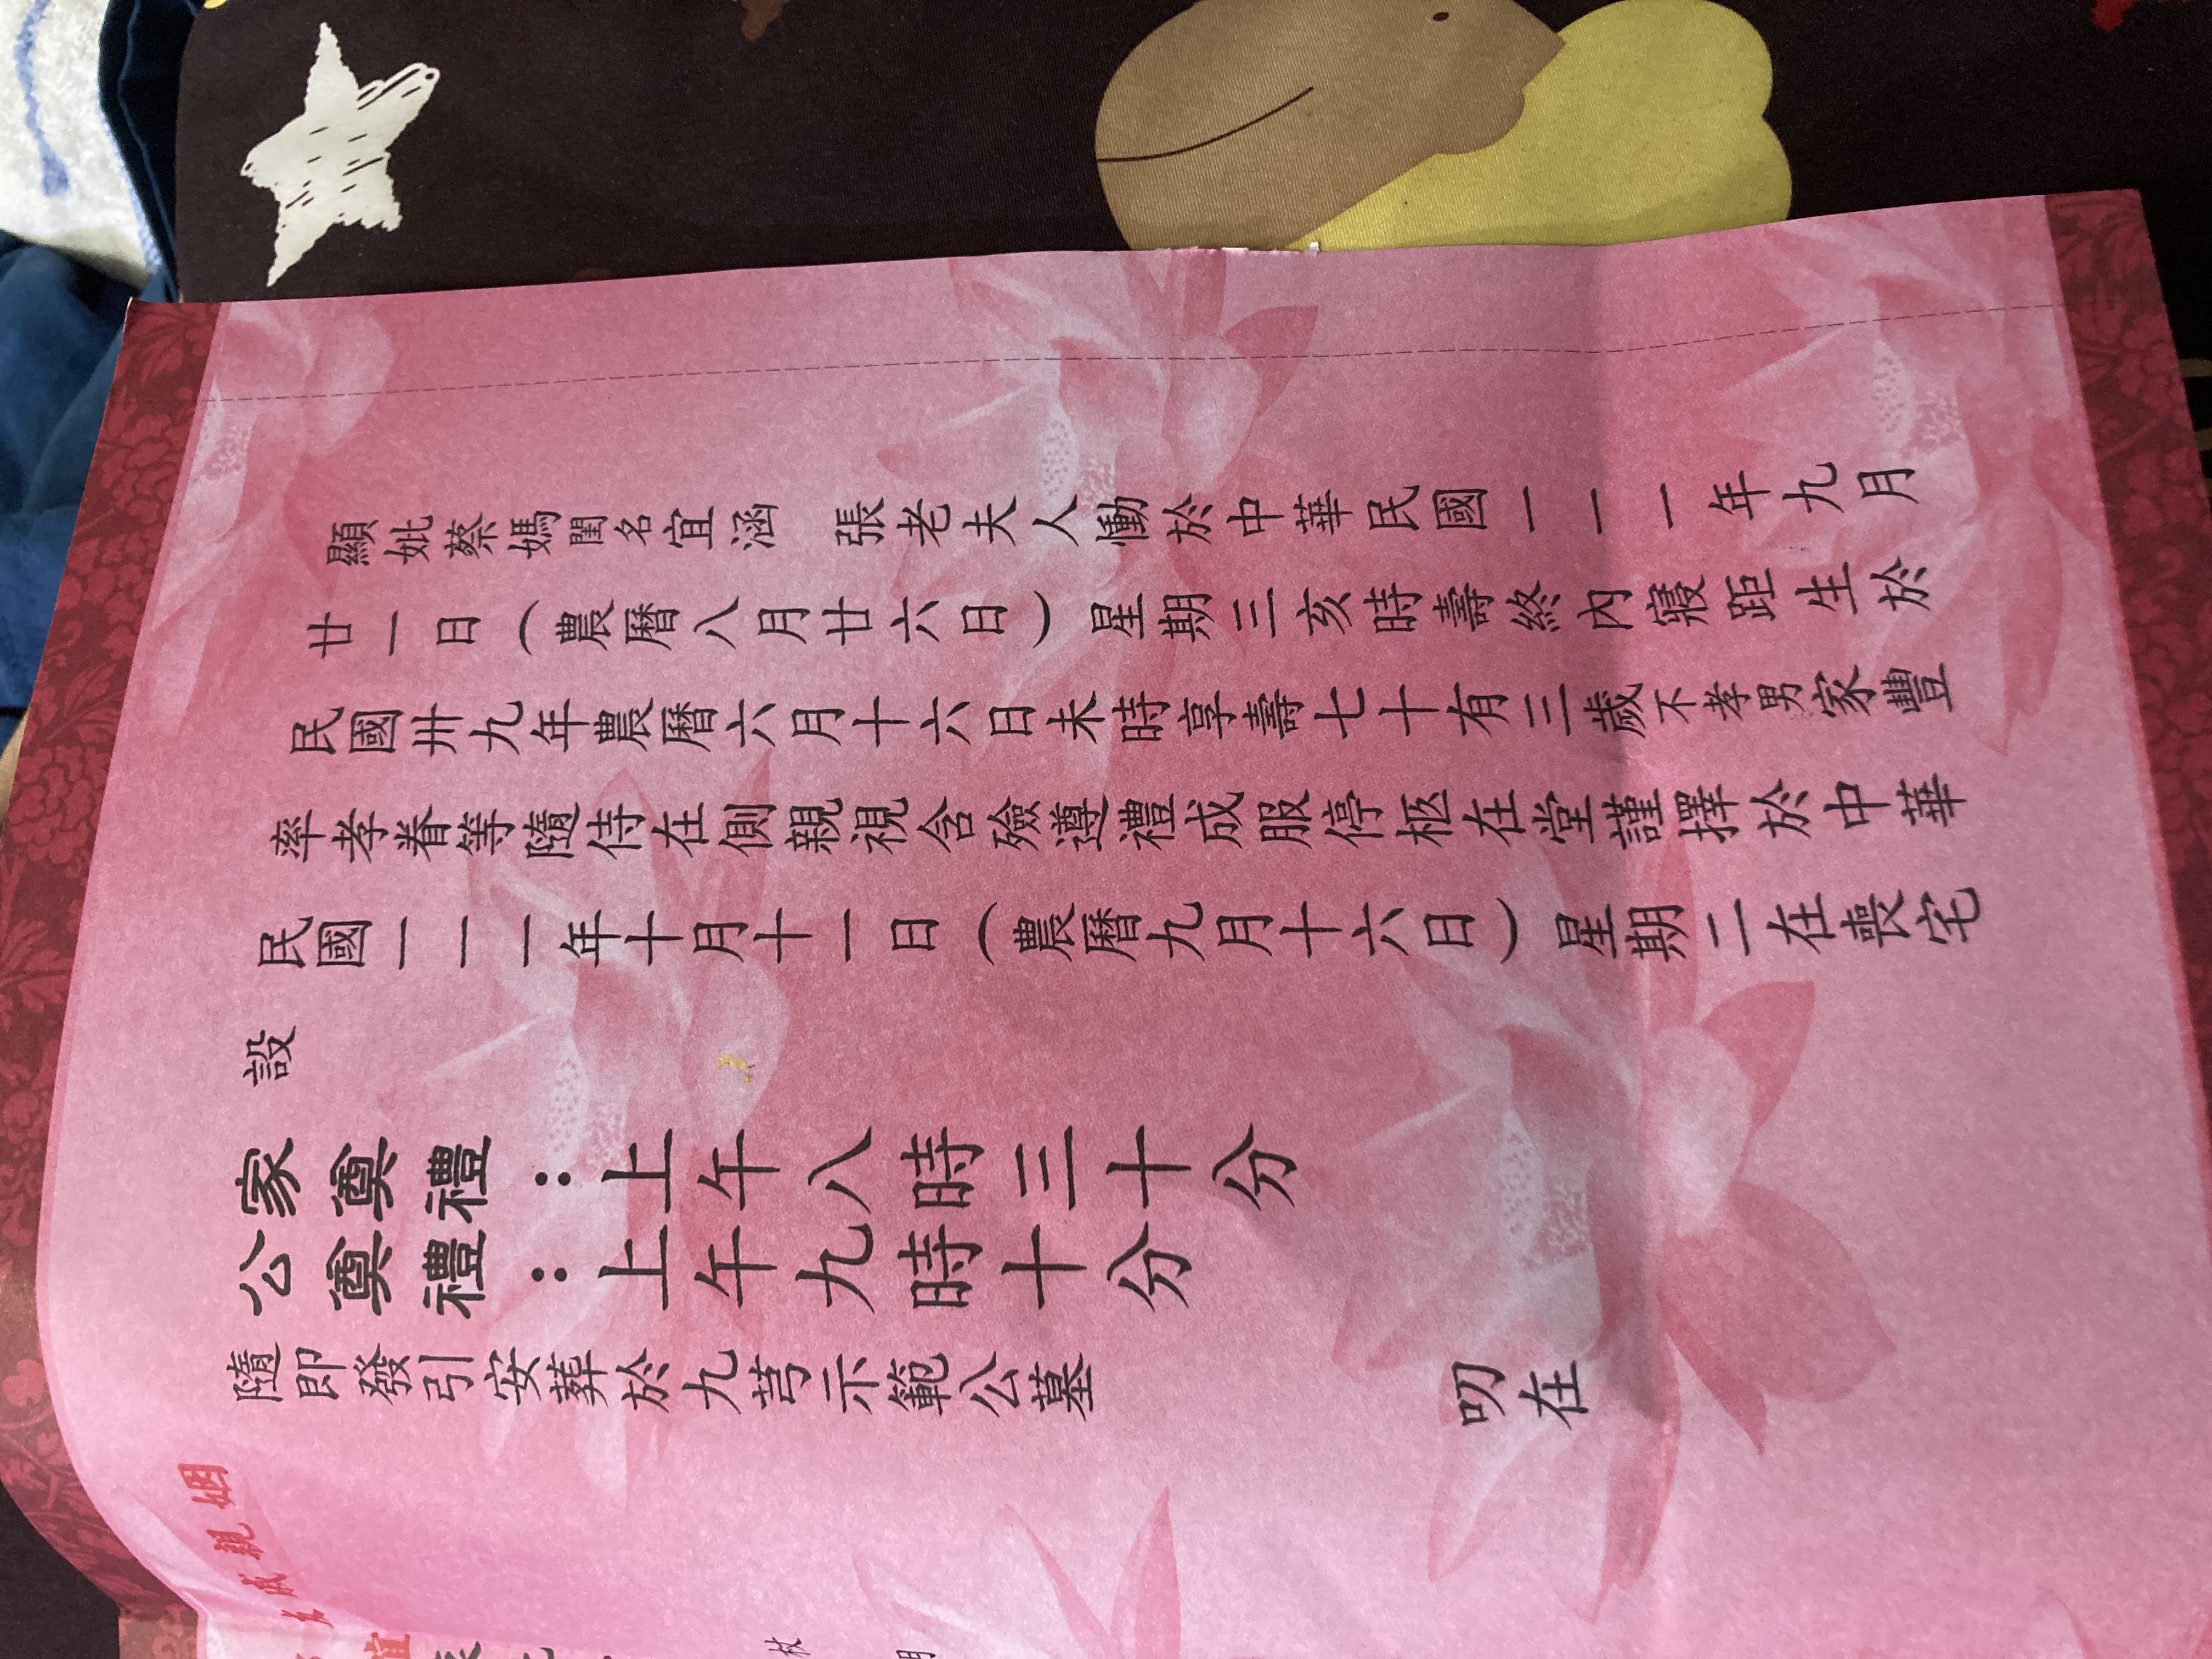 顯妣蔡媽閨名宜涵 張老夫人慟於中華民國一一一年九月
廿一日(農曆八月廿六日)星期三亥時壽終內寢距生於
民國卅九年農曆六月十六日未時享壽七十有三歲不孝男家豐
率孝眷等隨侍在側親視含殮遵禮成服停柩在堂謹擇於中華
民國一一一年十月十一日(農曆九月十六日)星期二在喪宅
設
家奠禮:上午八時三十分
公奠禮:上午九時十分
隨即發引安葬於九芎示範公墓
叨在
姻親戚友
誼